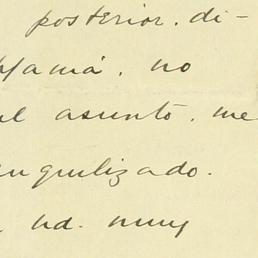 posterior. di-
Mamá. no
el asunto. me
anquilizado.
ud. muy